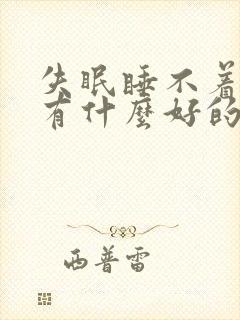 失眠睡不着
有什麽好的
西普雷